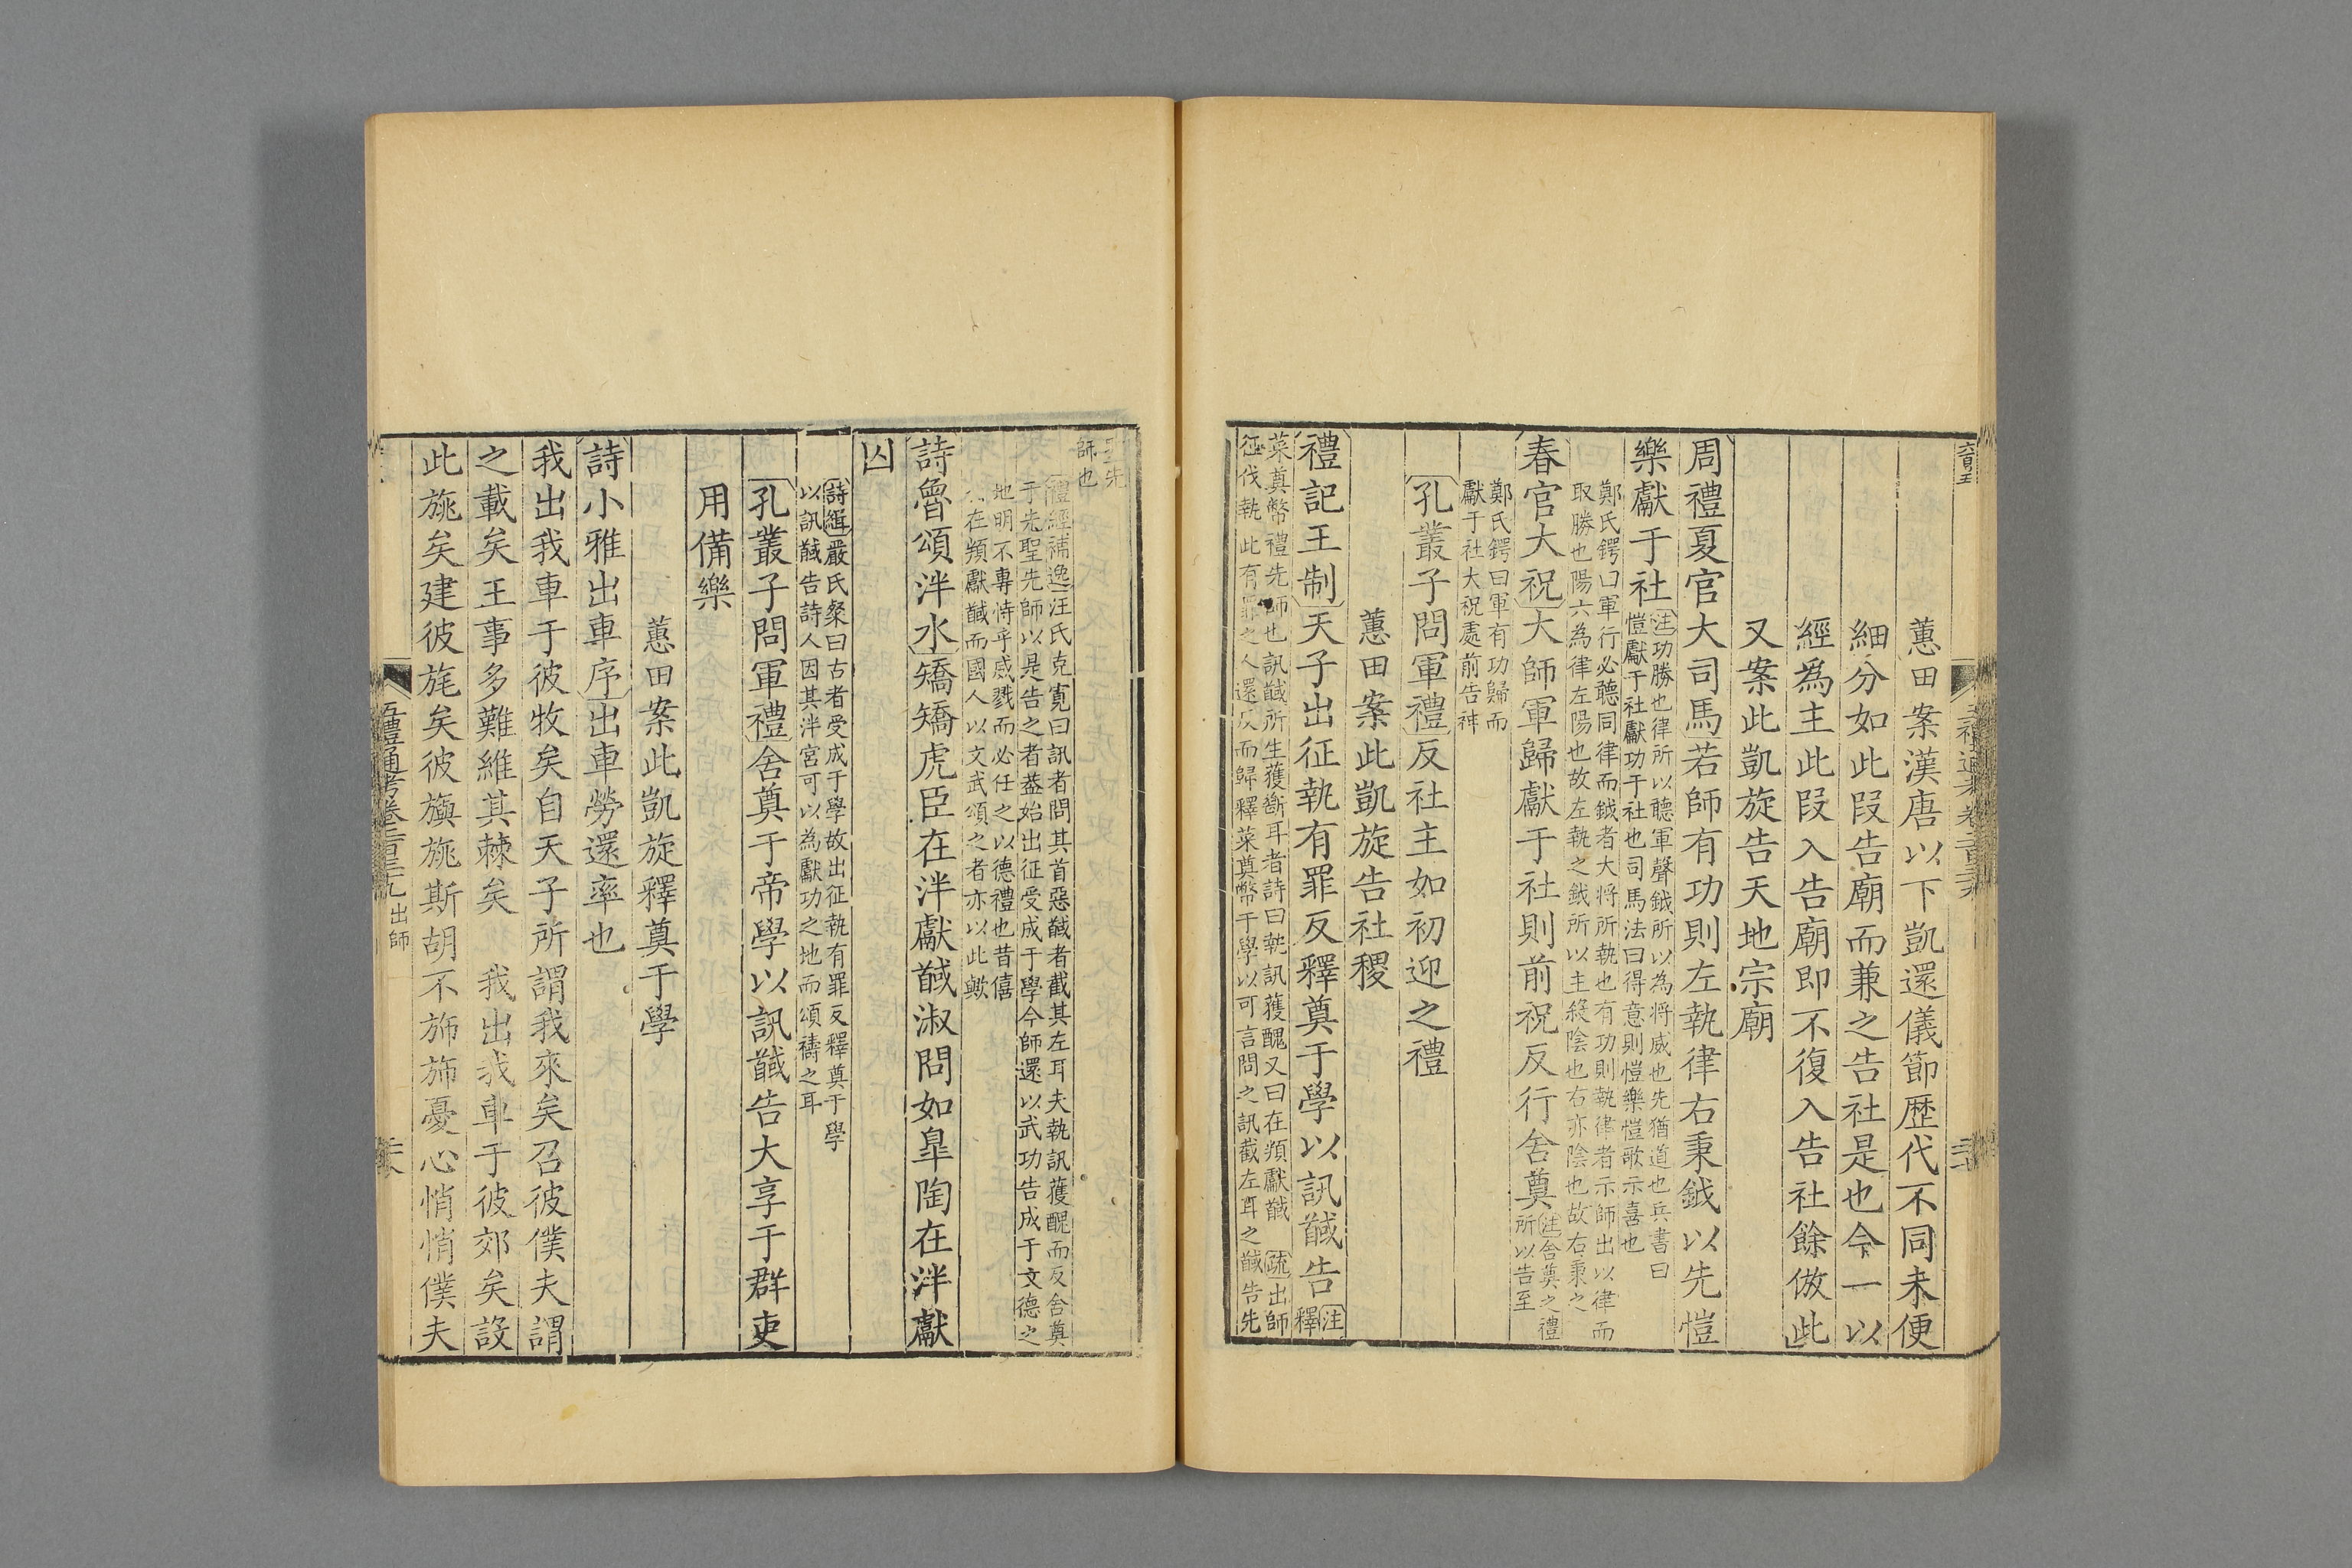 蕙田案漢唐以下凱還儀節歴代不同未便
細分如此叚告廟而兼之告社是也今一以
經為主此叚入告廟即不復入告社餘倣此
又案此凱旋告天地宗廟
周禮夏官大司馬若師有功則左執律右秉鉞以先愷
樂獻于社注功勝也律所以聽軍聲鉞所以為将威也先猶道也兵書曰
愷獻于社獻功于社也司馬法曰得意則愷樂愷歌示喜也
鄭氏鍔曰軍行必聽同律而鉞者大将所執也有功則執律者示師出以律而
取勝也陽六為律左陽也故左執之鉞所以主殺陰也右亦陰也故右秉之
春官大祝大師軍歸獻于社則前祝反行舍奠注舍奠之禮
所以告至
鄭氏鍔曰軍有功歸而
獻于社大祝處前告神
孔叢子問軍禮反社主如初迎之禮
蕙田案此凱旋告社稷
禮記王制天子出征執有罪反釋奠于學以訊馘告注
釋
菜奠幣禮先師也訊馘所生獲斷耳者詩曰執訊獲醜又曰在頖獻馘 疏出師
征伐執此有罪之人還反而歸釋菜奠幣于學以可言問之訊截左耳之馘告先
聖先
師也
禮經補逸汪氏克寛曰訊者問其首惡馘者截其左耳夫執訊獲醜而反舍奠
于先聖先師以是告之者葢始出征受成于學今師還以武功告成于文德之
地明不專恃乎威戮而必任之以德禮也昔僖
在頖獻馘而國人以文武頌之者亦以此歟
詩魯頌泮水矯矯虎臣在泮獻馘淑問如臯陶在泮獻
囚
詩緝嚴氏粲曰古者受成于學故出征執有罪反釋奠于學
以訊馘告詩人因其泮宮可以為獻功之地而頌禱之耳
孔叢子問軍禮舍奠于帝學以訊馘告大享于群吏
用備樂
蕙田案此凱旋釋奠于學
詩小雅出車序出車勞還率也
我出我車于彼牧矣自天子所謂我來矣召彼僕夫謂
之載矣王事多難維其棘矣 我出我車于彼郊矣設
此旐矣建彼旄矣彼旟旐斯胡不斾斾憂心悄悄僕夫
五禮通考卷二百三十九 出師